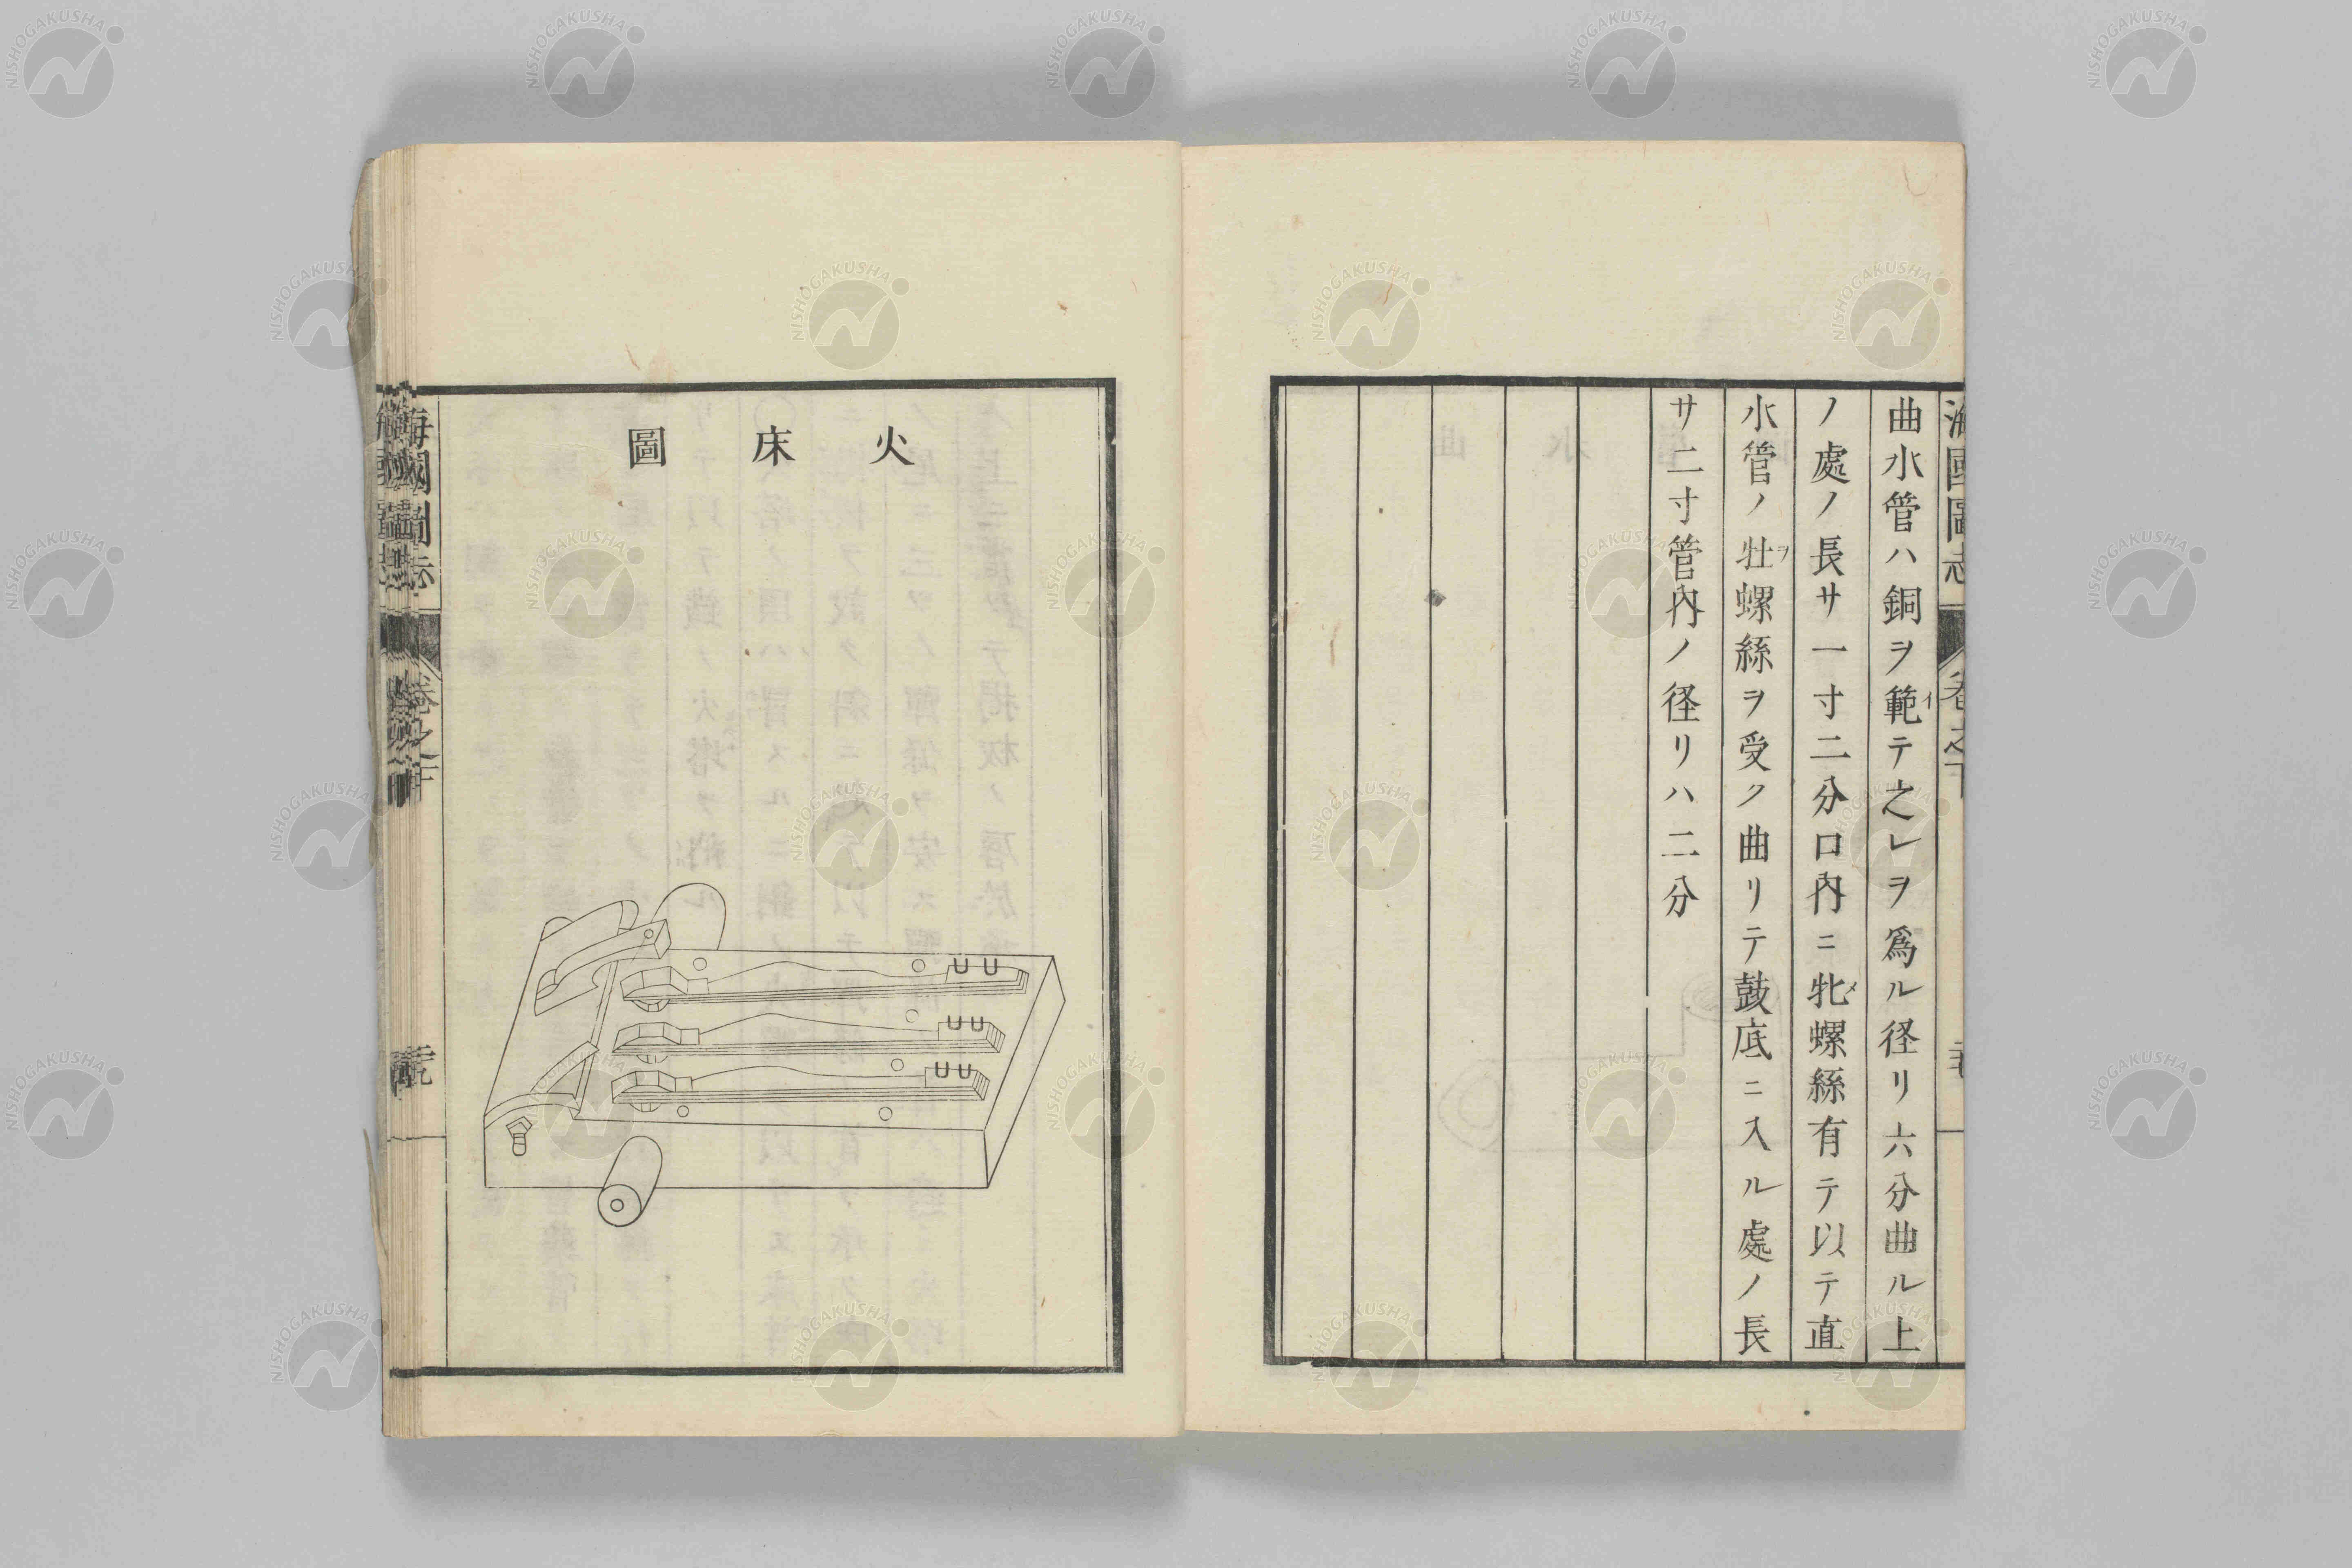 曲水管ハ銅ヲ範イテ之レヲ爲ル径リ六分曲ル上
ノ處ノ長サ一寸二分口内ニ牝メ螺絲有テ以テ直
水管ノ牡ヲ螺絲ヲ受ク曲リテ鼓底ニ入ル處ノ長
サ二寸管內ノ径リハ二分
火床圖
海國圖志
NISHOGAKUSHA